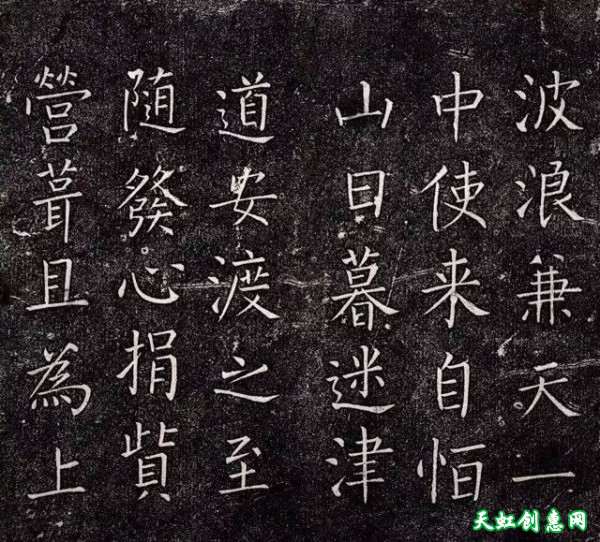 波浪兼天一
中使来自恒
山日暮迷津
道安渡之至
随發心捐貲
營葺且為上
天虹创惠网